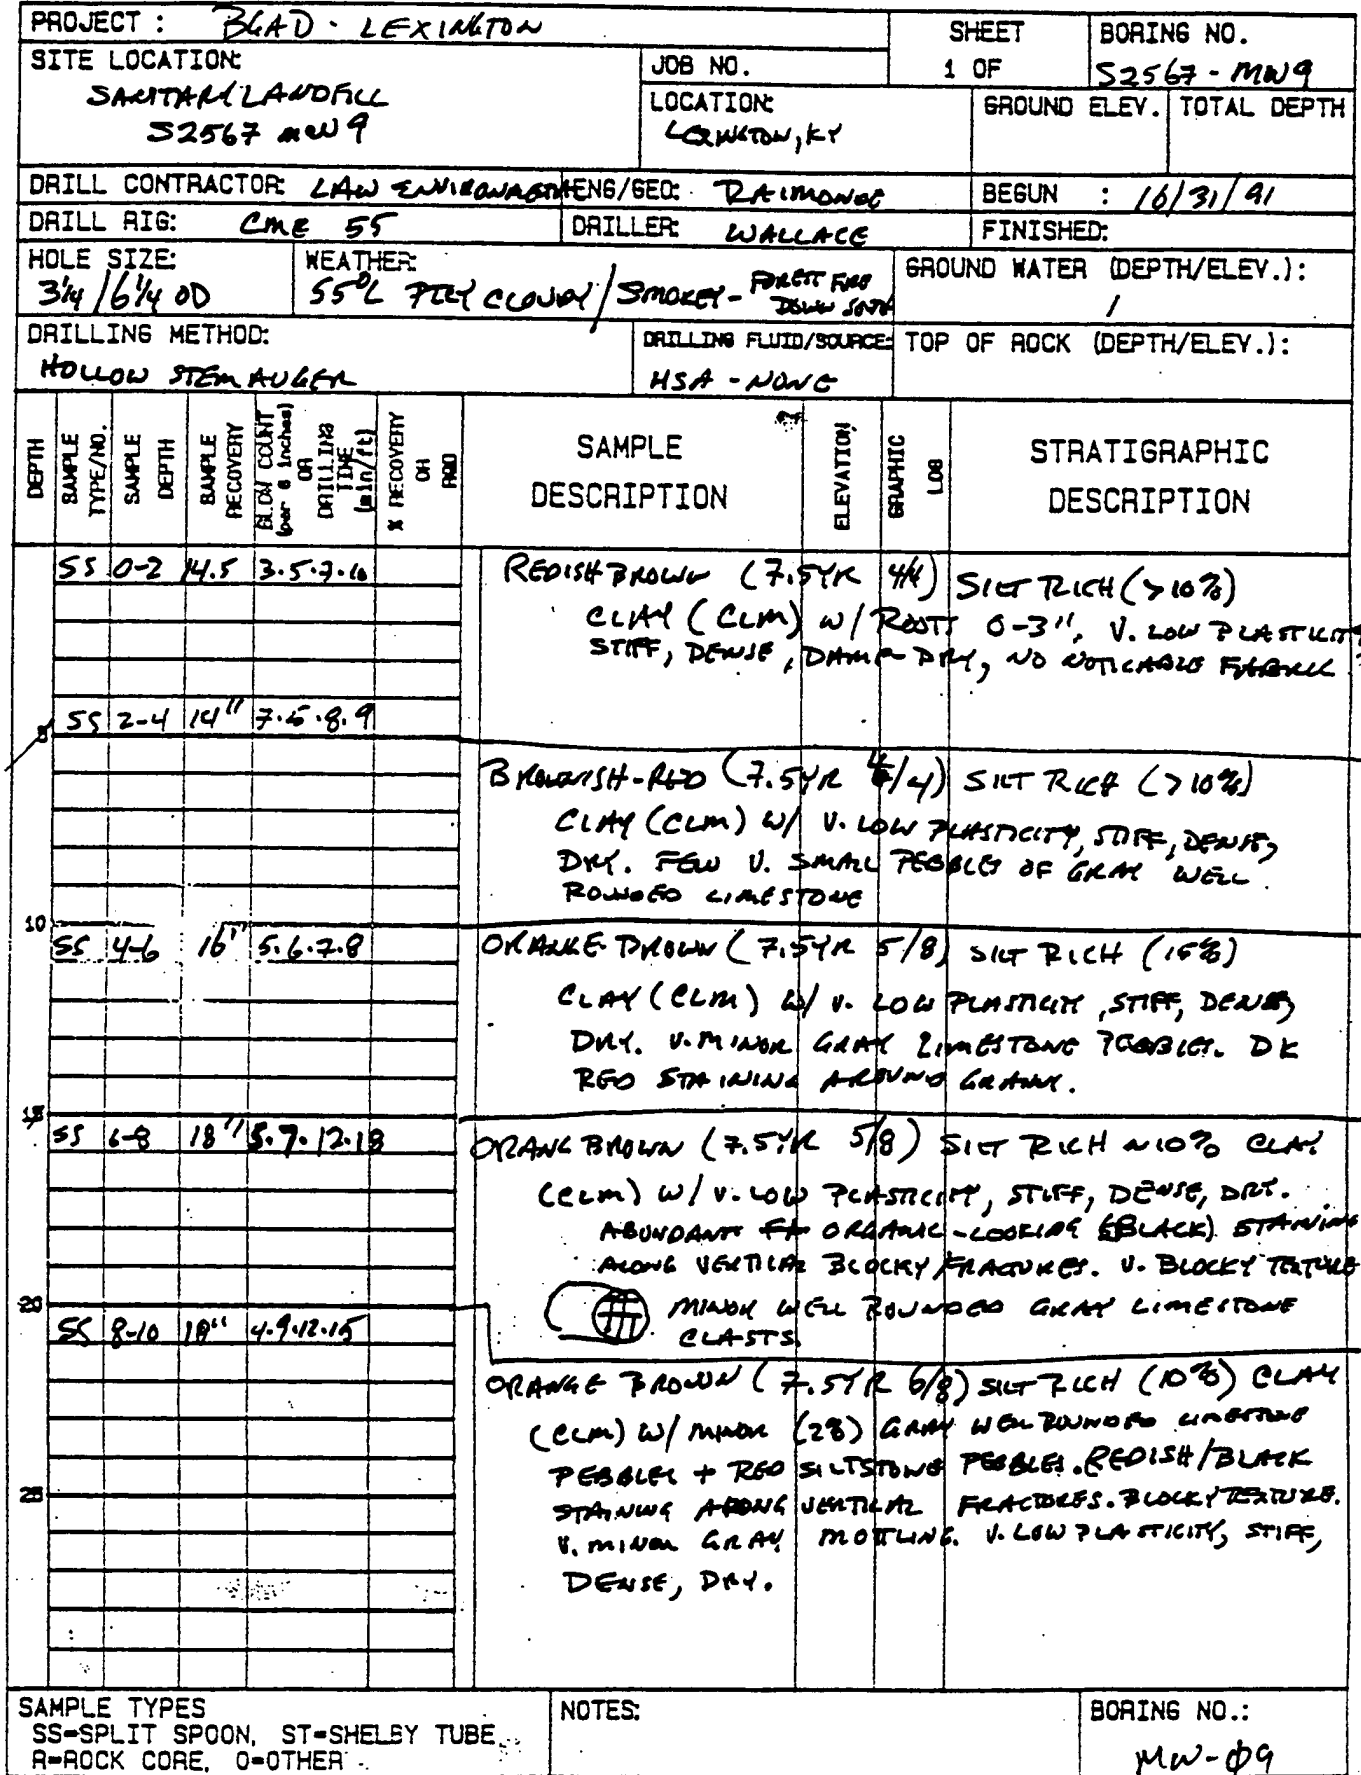 PROJECT : BGAD - LEXINGTON
SHEET
1 OF
BORING NO.
S2567 - MW9
SITE LOCATION:
SANITARY LANDFILL
S2567 MW 9
JOB NO.
LOCATION:
LEXINGTON, KY
GROUND ELEV.
TOTAL DEPTH
DRILL CONTRACTOR: LAW ENVIRONMENTAL
ENG/GEO: RAIMONDE
BEGUN : 10/31/91
DRILL RIG: CME 55
DRILLER: WALLACE
FINISHED:
HOLE SIZE:
3 1/4 / 6 1/4 OD
WEATHER:
55° PTLY CLOUDY / SMOKEY - FOREST FIRE
DOWN SOUTH
GROUND WATER (DEPTH/ELEV.):
/
DRILLING METHOD:
HOLLOW STEM AUGER
DRILLING FLUID/SOURCE:
HSA - NONE
TOP OF ROCK (DEPTH/ELEV.):
DEPTH
SAMPLE TYPE/NO.
SAMPLE DEPTH
SAMPLE RECOVERY
BLOW COUNT (per 6 inches) OR DRILLING TIME (min/ft)
% RECOVERY OR RQD
SAMPLE DESCRIPTION
ELEVATION
GRAPHIC LOG
STRATIGRAPHIC DESCRIPTION
SS 0-2 14.5 3.5.7.10
REDISH BROWN (7.5YR 4/4) SILT RICH (>10%)
CLAY (CLM) W/ ROOTS 0-3", V. LOW PLASTICITY,
STIFF, DENSE, DAMP-DRY, NO NOTICABLE FABRIC
SS 2-4 14" 7.5.8.9
5
BROWNISH-RED (7.5YR 4/4) SILT RICH (>10%)
CLAY (CLM) W/ V. LOW PLASTICITY, STIFF, DENSE,
DRY. FEW V. SMALL PEBBLES OF GRAY WELL
ROUNDED LIMESTONE
10
SS 4-6 16" 5.6.7.8
ORANGE BROWN (7.5YR 5/8) SILT RICH (15%)
CLAY (CLM) W/ V. LOW PLASTICITY, STIFF, DENSE,
DRY. V. MINOR GRAY LIMESTONE PEBBLES. DK
RED STAINING AROUND GRAINS.
15
SS 6-8 18" 5.7.12.18
ORANG BROWN (7.5YR 5/8) SILT RICH ~10% CLAY
(CLM) W/ V. LOW PLASTICITY, STIFF, DENSE, DRY.
ABUNDANT ORGANIC-LOOKING (BLACK) STAINING
ALONG VERTICAL BLOCKY/FRACTURES. V. BLOCKY TEXTURE
MINOR WELL ROUNDED GRAY LIMESTONE
CLASTS.
20
SS 8-10 18" 4.9.12.15
ORANGE BROWN (7.5YR 6/8) SILT RICH (10%) CLAY
(CLM) W/ MINOR (2%) GRAY WELL ROUNDED LIMESTONE
PEBBLES + RED SILTSTONE PEBBLES. REDISH/BLACK
STAINING ALONG VERTICAL FRACTURES. BLOCKY TEXTURE.
V. MINOR GRAY MOTTLING. V. LOW PLASTICITY, STIFF,
DENSE, DRY.
25
SAMPLE TYPES
SS=SPLIT SPOON, ST=SHELBY TUBE
R=ROCK CORE, O=OTHER
NOTES:
BORING NO.:
MW-09